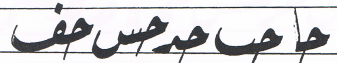 حا حب حد حس حف